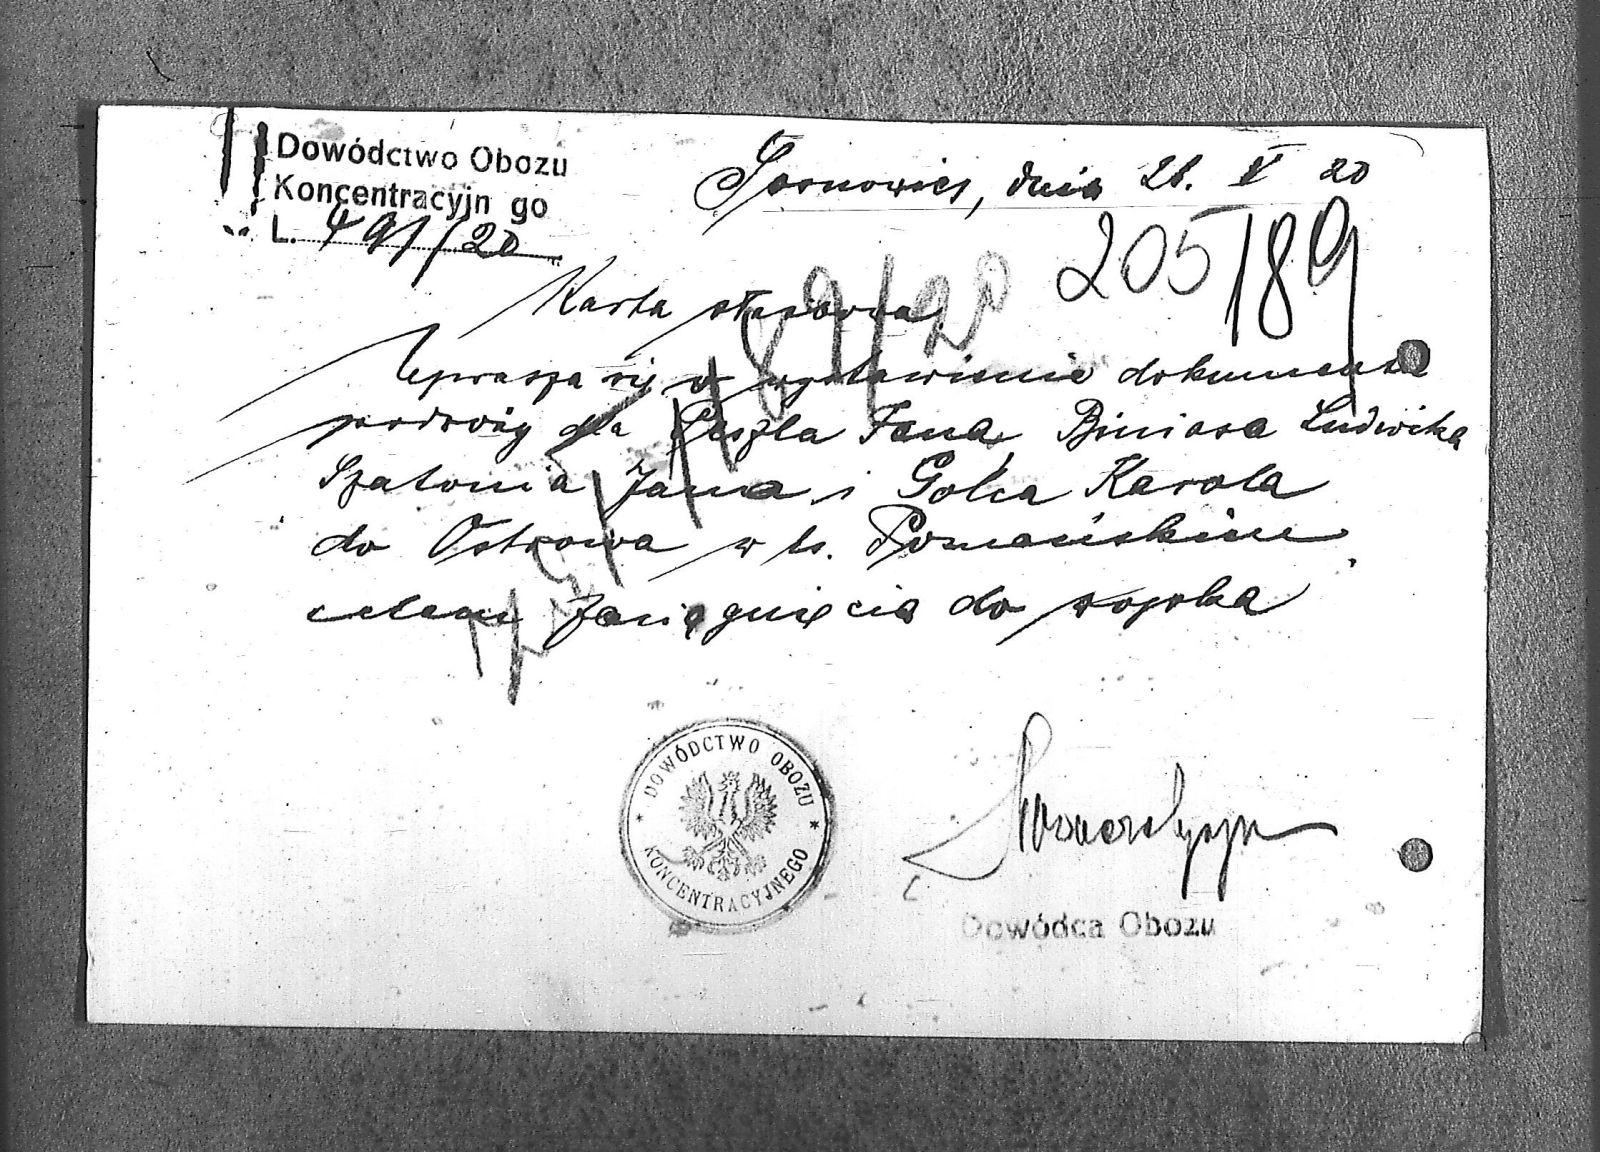 Dowództwo Obozu
Koncentracyjn go
L. 491/20
Sosnowiec, dnia 21. V 20
205/89
Karta służbowa
Uprasza się o wystawienie dokumentu
podróży dla Jana Biniasa Ludwika
Szatonia Jana i Golca Karola
do Ostrowa w Ks. Poznańskiem
celem zaciągnięcia do wojska
DOWÓDCTWO OBOZU
KONCENTRACYJNEGO
Dowódca Obozu